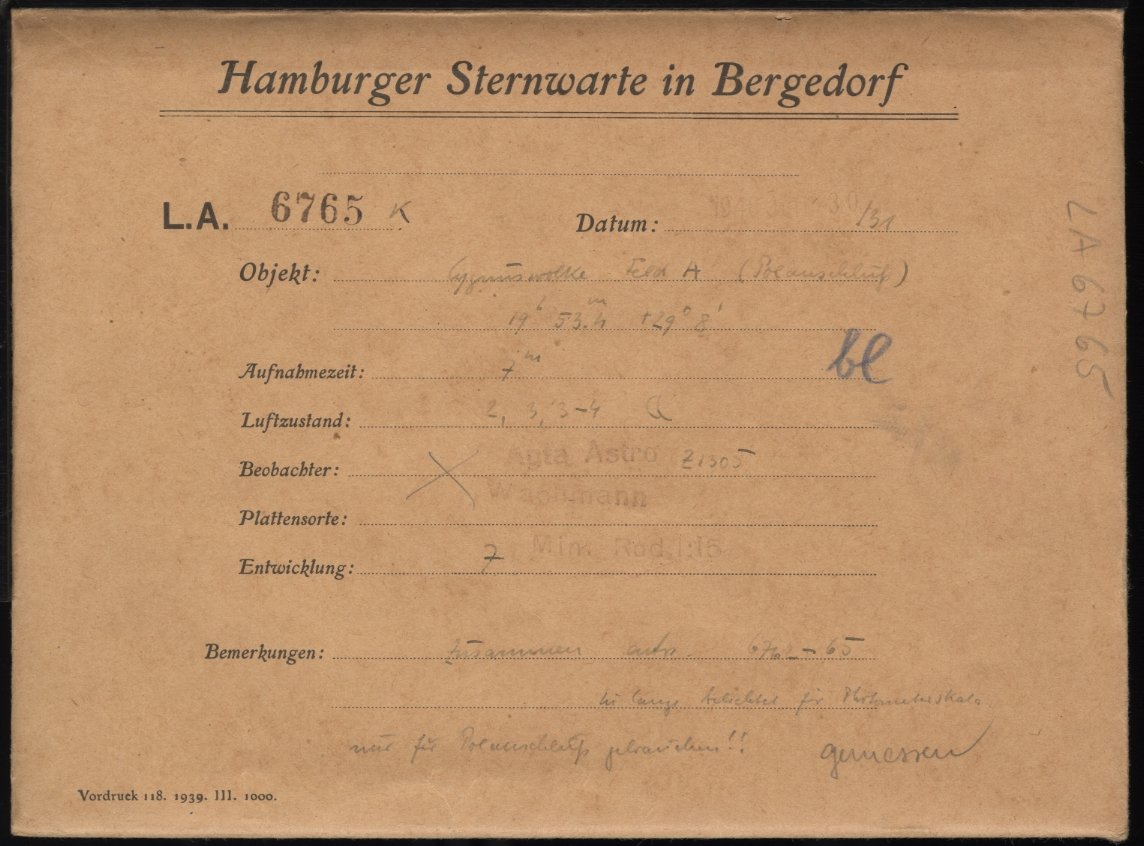 Hamburger Sternwarte in Bergedorf
L.A. 6765 K Datum: 30/31
Objekt: Cygnuswolke Feld A (Polanschluß)
19h 53.4m +29° 8'
Aufnahmezeit: 7m
bl
Luftzustand: 2, 3, 3-4
Agfa Astro Z1305
Beobachter:
Wachmann
Plattensorte:
Min. Rod. 1:15
Entwicklung: 7
Bemerkungen: Zusammen 6762-65
zu lange belichtet für
nur für Polanschluß gebrauchen!! gemessen
Vordruck 118. 1939. III. 1000.
LA 6765